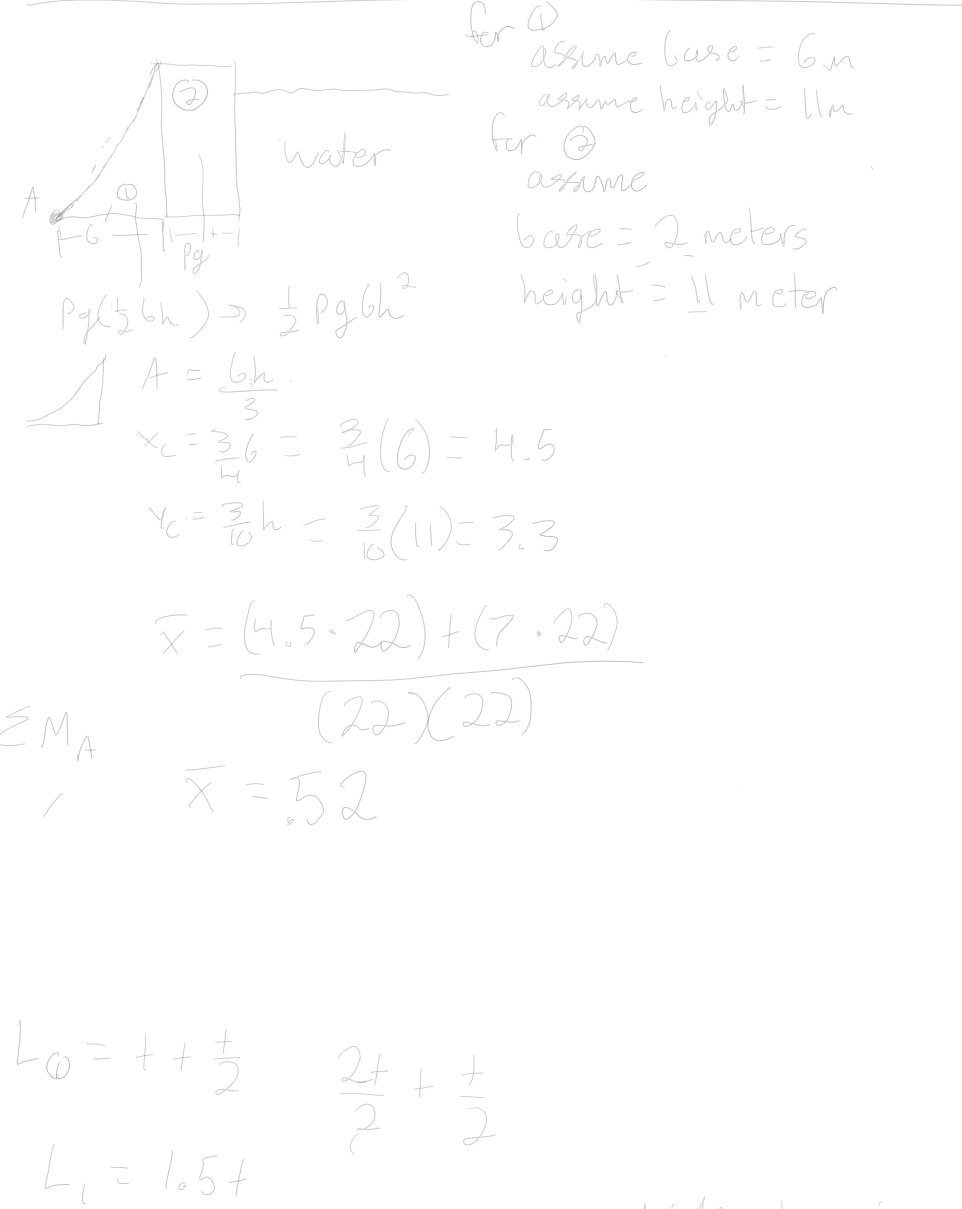 for ①
assume base = 6m
assume height = 11m
for ②
assume
base = 2 meters
height = 11 meter
②
water
①
A
6
t
Pg
Pg(½bh) → ½ Pgbh²
A = bh/3
x_c = 3/4 b = 3/4 (6) = 4.5
y_c = 3/10 h = 3/10 (11) = 3.3
x̄ = (4.5 · 22) + (7 · 22) / (22)(22)
ΣM_A
x̄ = .52
L① = t + t/2    2t/2 + t/2
L₁ = 1.5t